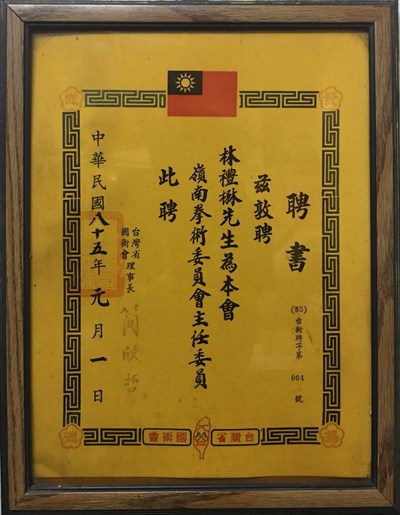 聘書
(85)台術聘字第 004 號
茲敦聘
林禮楸先生為本會
嶺南拳術委員會主任委員
此聘
台灣省國術會理事長
中華民國八十五年元月一日
台灣省國術會